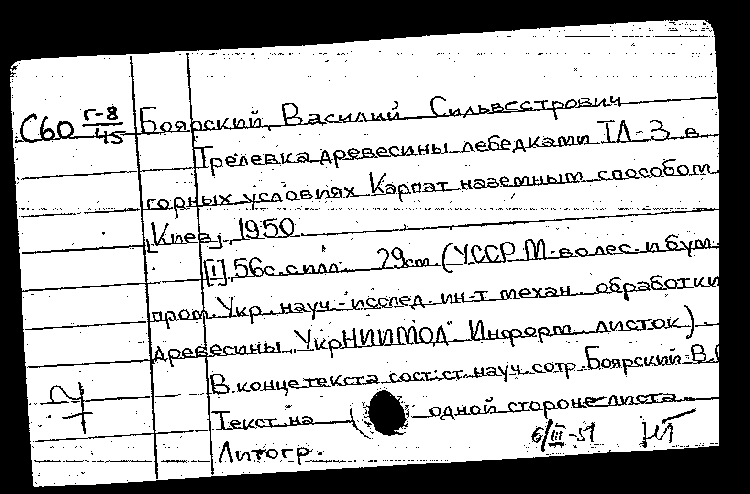 С60 г-8/45 Боярский, Василий Сильвестрович
Трелевка древесины лебедками ТЛ-3 в
горных условиях Карпат наземным способом
[Киев], 1950.
[1], 56с. с илл. 29см. (УССР М-во лес. и бум.
пром. Укр. науч.-исслед. ин-т механ. обработки
древесины "УкрНИИМОД". Информ. листок)
В конце текста сост: ст. науч. сотр. Боярский В.
Текст на одной стороне листа.
Литогр.
6/III-51